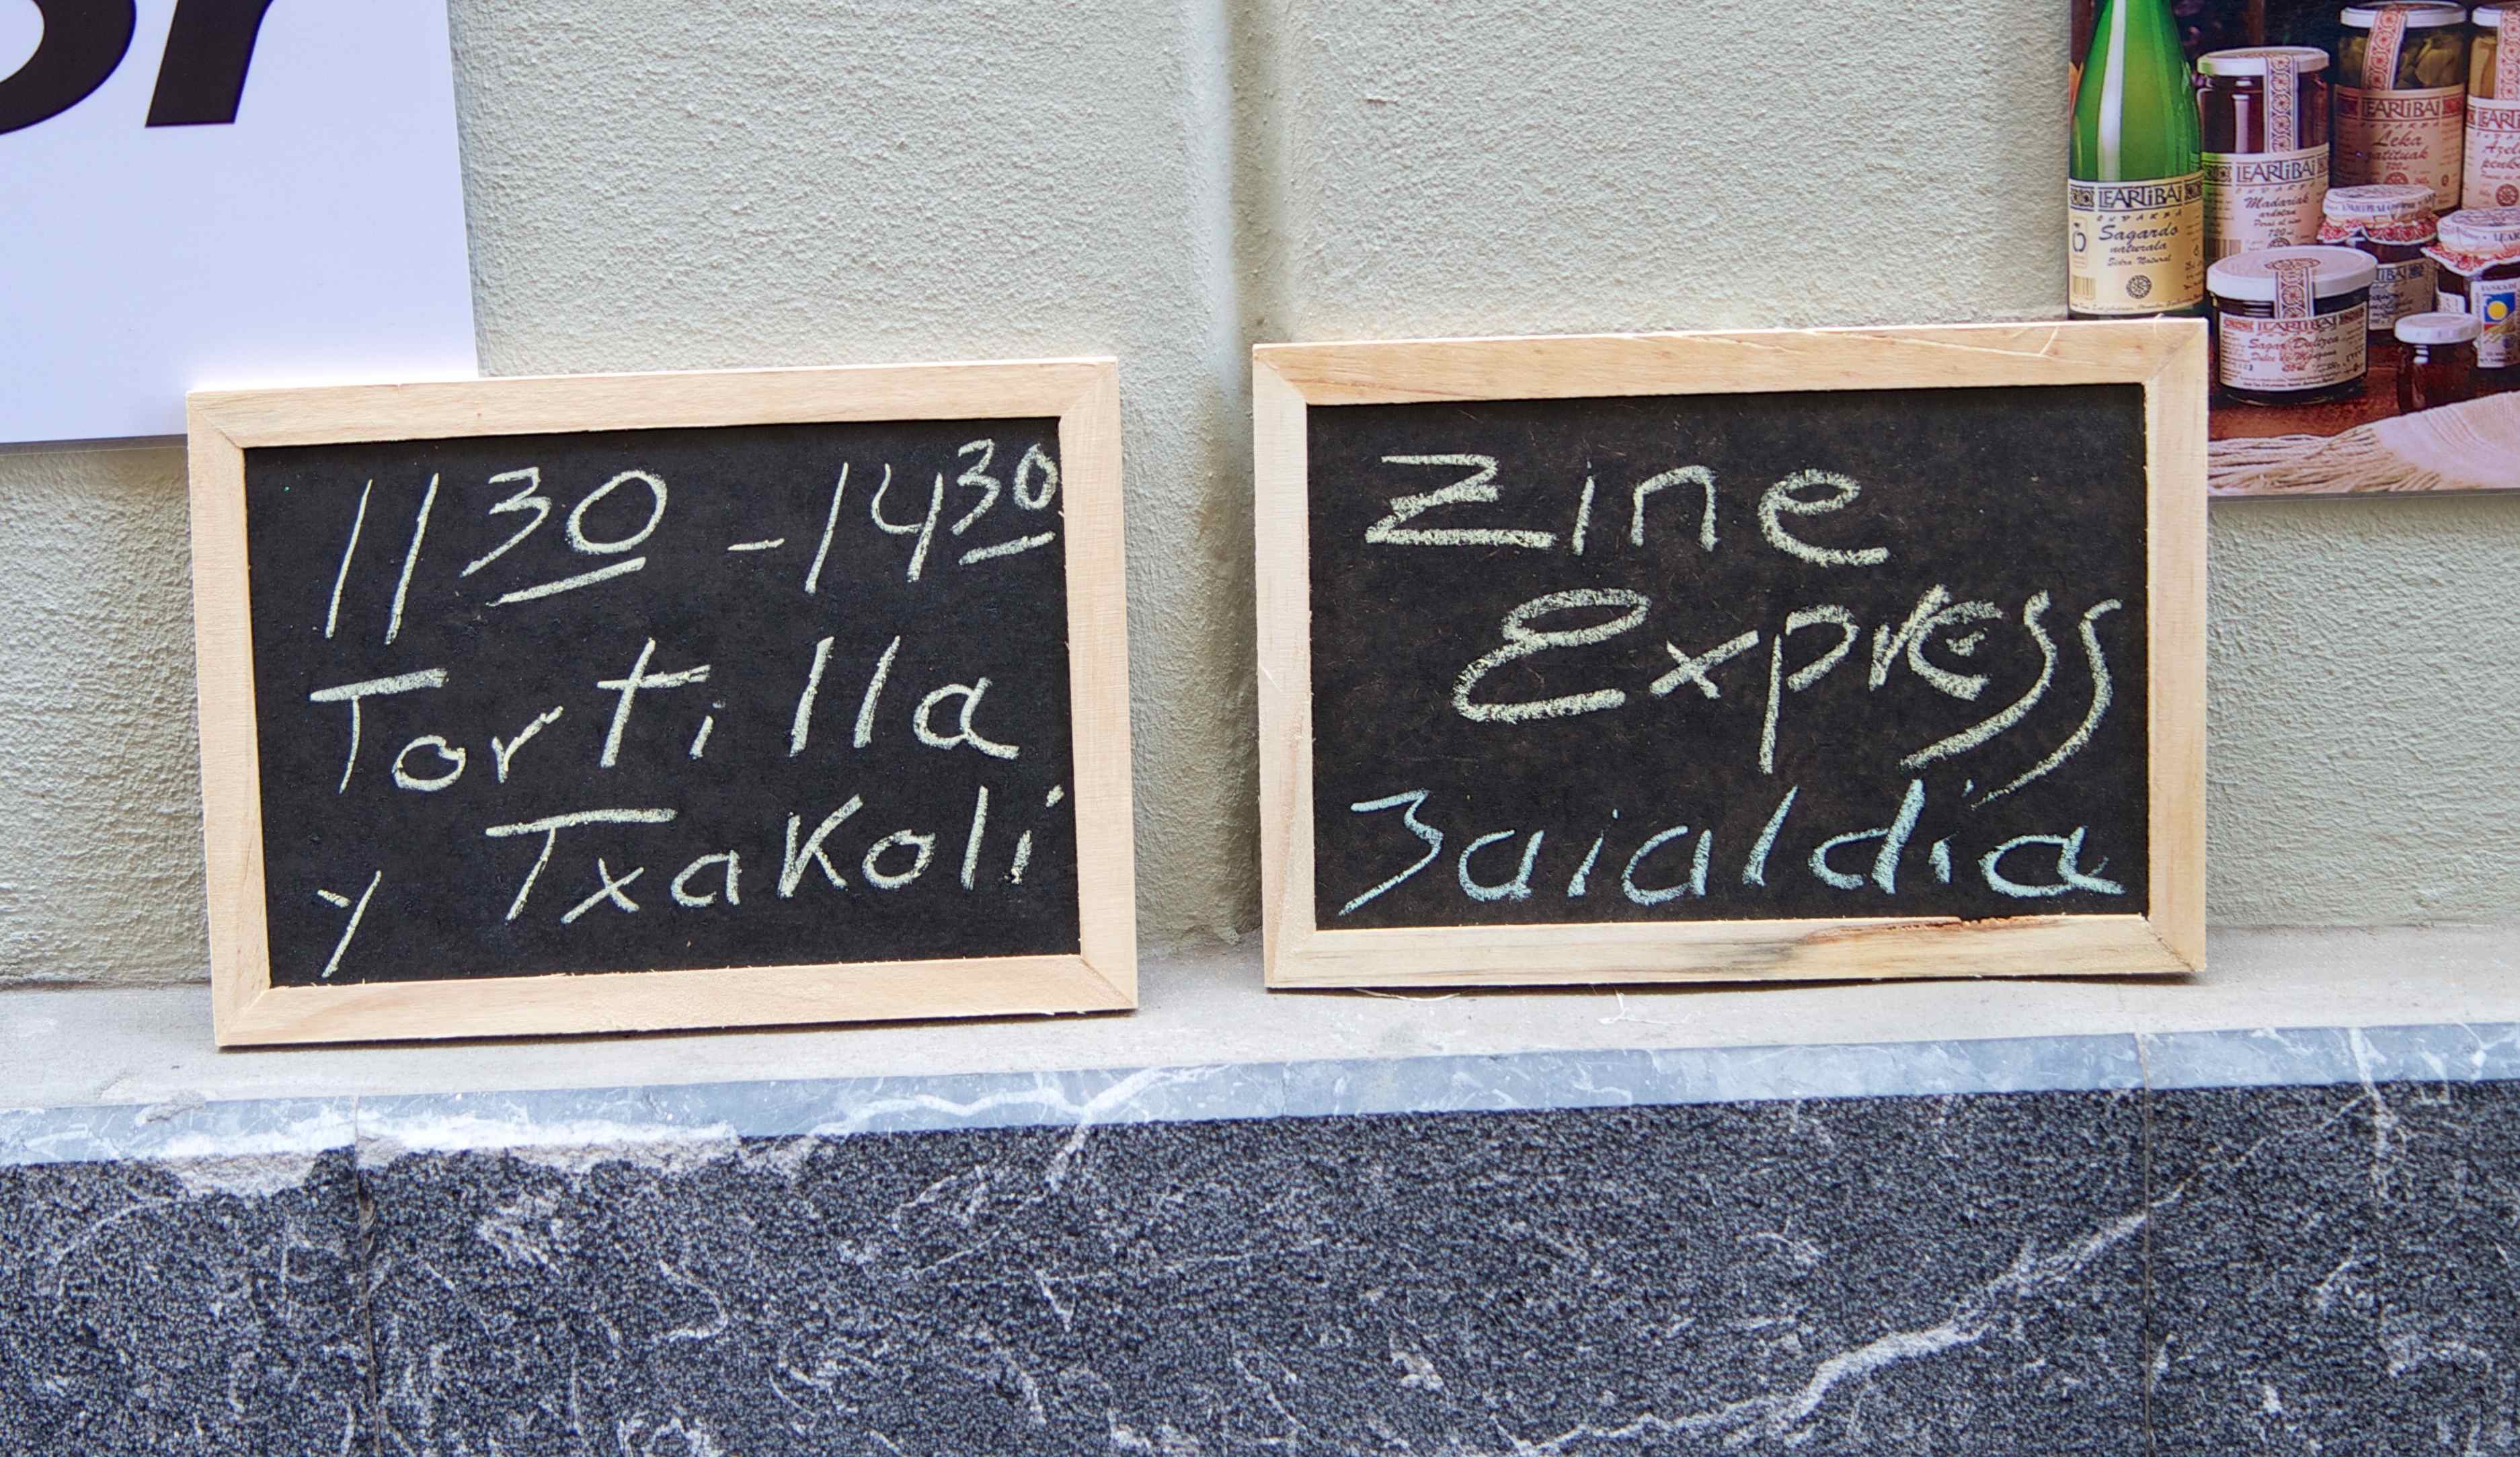 11 30 - 14 30
Tortilla
y Txakoli
Zine
Express
3aialdia
LEARTIBAI
Sagardo
naturala
Sidra Natural
LEARTIBAI
Madariak
ardotan
720
LEARTIBAI
Leka
zatituak
LEARTIBAI
Sagar Dultzea